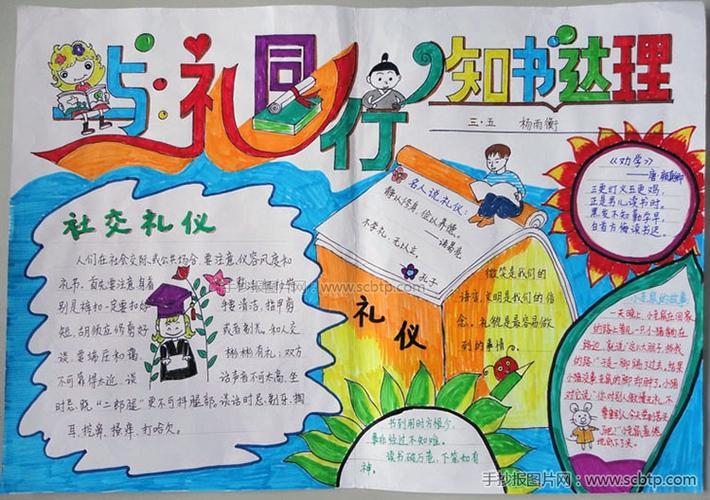 与礼同行
知书达理
三·五 杨雨衡
社交礼仪
人们在社会交际或公共场合,要注意仪容风度和
礼节。首先要注意身着
别是裤和一定要扣好
搂清洁,指甲剪
短,胡须应修剪好
或者刮光。和人交
谈,要端庄和蔼
彬彬有礼,双方
不可靠得太近,谈
话声音不可太高,坐
时忌跷“二郎腿”更不可抖腿部,谈话时忌剔牙、掏
耳、挖鼻、搔痒、打哈欠。
名人说礼仪:
静以修身,俭以养德。
诸葛亮
不学礼,无以立。
孔子
礼仪
微笑是我们的
语言,文明是我们的信
念。礼貌是最容易做
到的事情。
书到用时方恨少,
事非经过不知难。
读书破万卷,下笔如有
神。
《劝学》
——唐·颜真卿
三更灯火五更鸡,
正是男儿读书时。
黑发不知勤学早,
白首方悔读书迟。
小老鼠的故事
一天晚上,小老鼠在回家
的路上看见一只小猫躺在
手抄报图片网 www.scbtp.com
手抄报图片网:www.scbtp.com